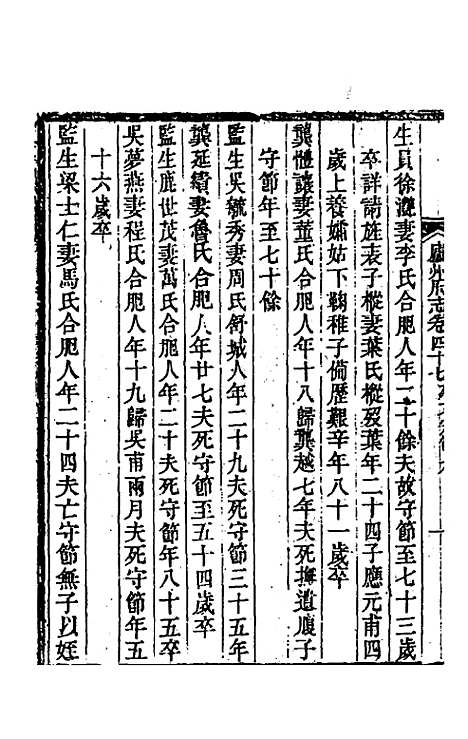 廬州府志卷四十七
生員徐瀊妻李氏合肥人年二十餘夫故守節至七十三歲
卒詳請旌表子樅妻葉氏樅歿葉年二十四子應元甫四
歲上養孀姑下鞠稚子備歷艱辛年八十一歲卒
龔體讓妻董氏合肥人年十八歸龔越七年夫死撫遺腹子
守節年至七十餘
監生吳毓秀妻周氏舒城人年二十九夫死守節三十五年
龔延纘妻魯氏合肥人年廿七夫死守節至五十四歲卒
監生鹿世茂妻萬氏合肥人年二十夫死守節年八十五卒
吳夢燕妻程氏合肥人年十九歸吳甫兩月夫死守節年五
十六歲卒
監生梁士仁妻馬氏合肥人年二十四夫亡守節無子以姪